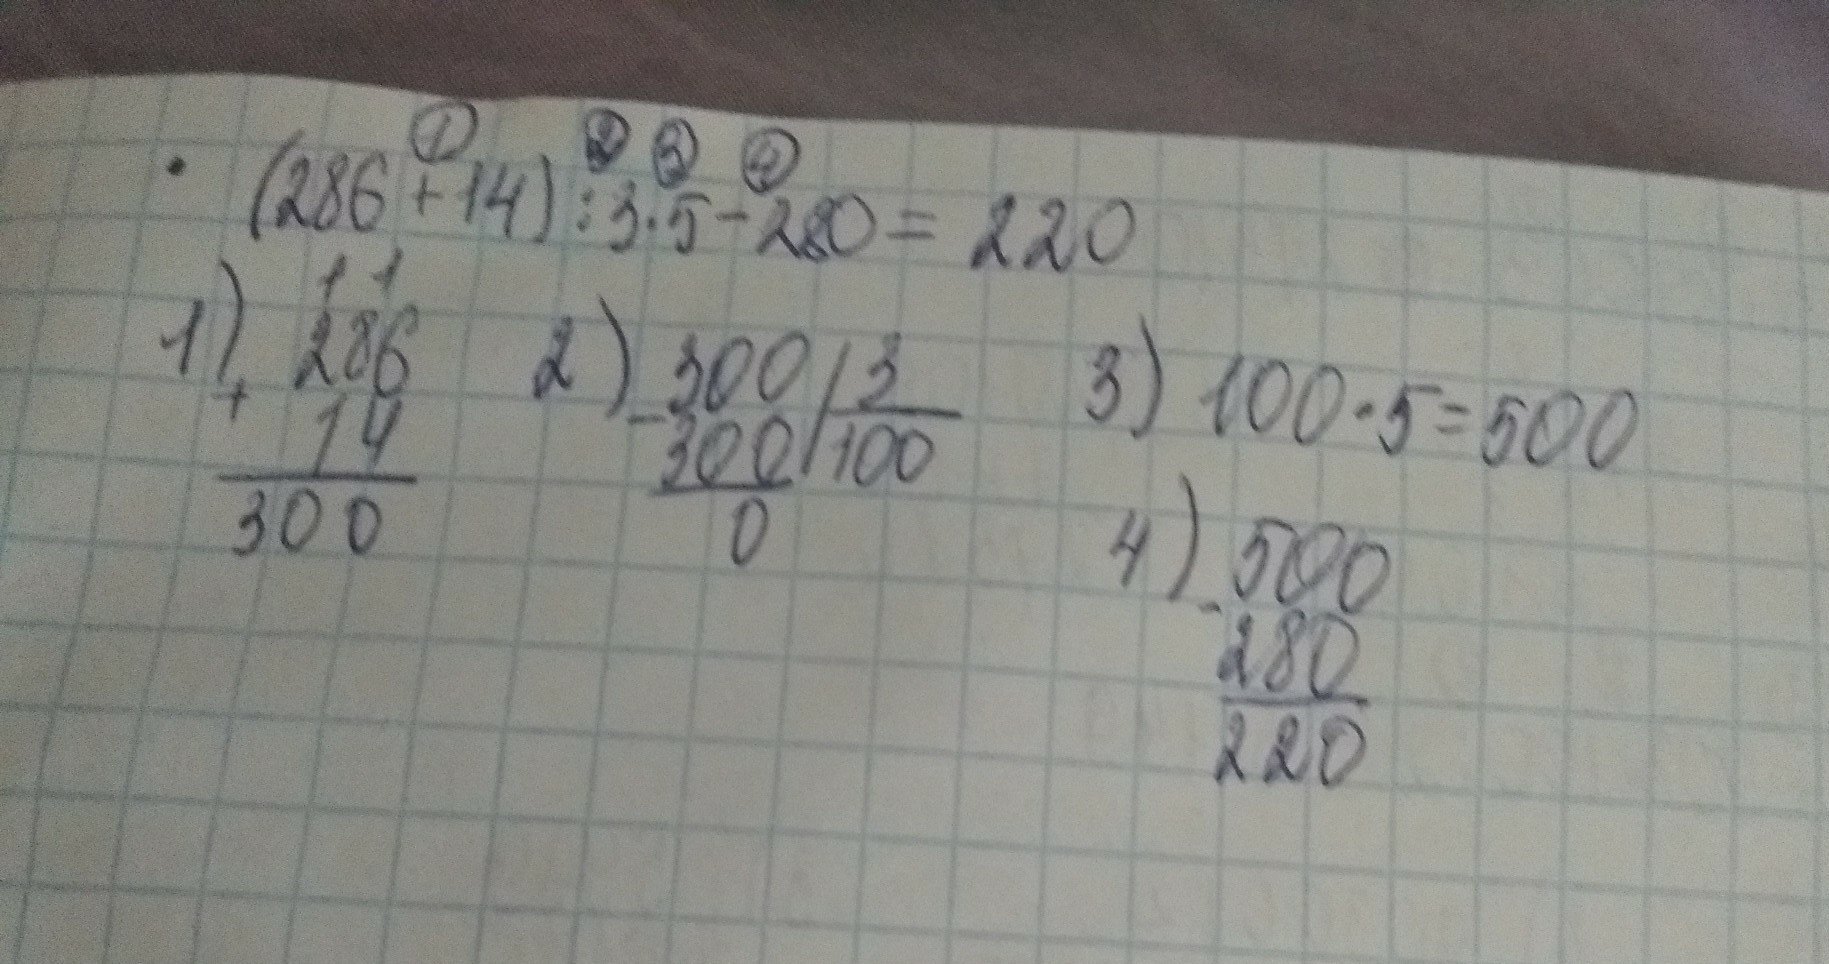 ① ② ③ ④
• (286+14):3·5-280=220
1) 1 1
286
+ 14
300
2) 300 | 3
- 300 | 100
0
3) 100·5=500
4) 500
- 280
220